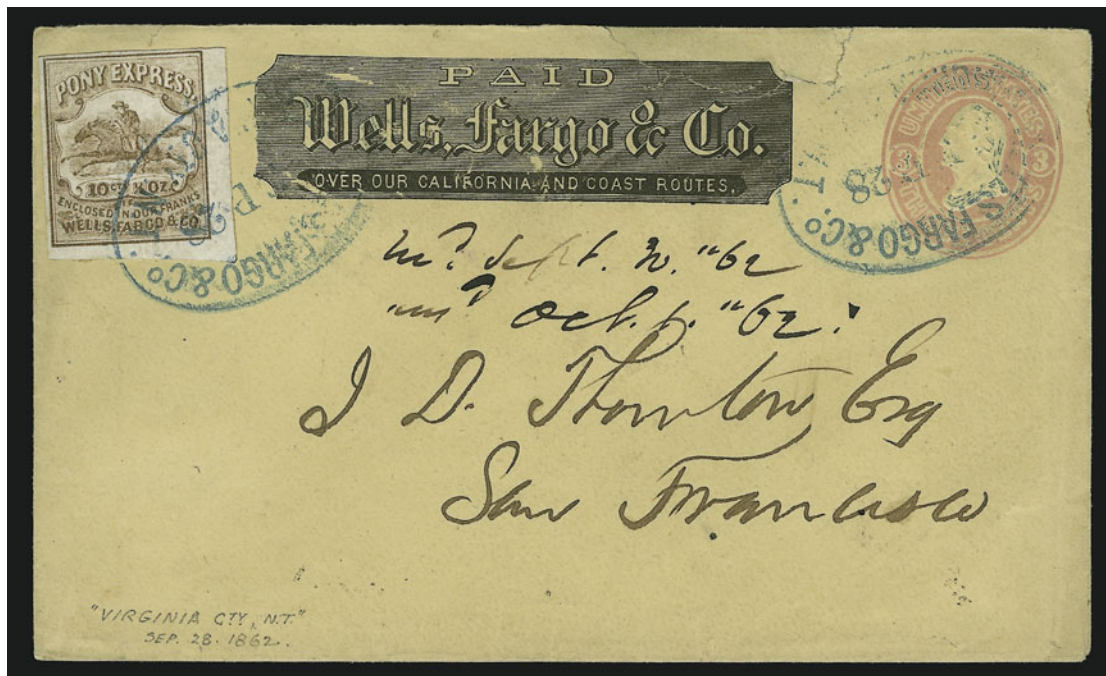 PONY EXPRESS
10 CTS ½ OZ
ENCLOSED IN OUR FRANKS
WELLS, FARGO & CO.
PAID
Wells, Fargo & Co.
OVER OUR CALIFORNIA AND COAST ROUTES.
UNITED STATES
3 3
FARGO & CO.
28
S. FARGO & CO.
28
Sept. "62
Oct. 1. "62.
I D. Thornton Esq
San Francisco
"VIRGINIA CTY, N.T."
SEP. 28. 1862.